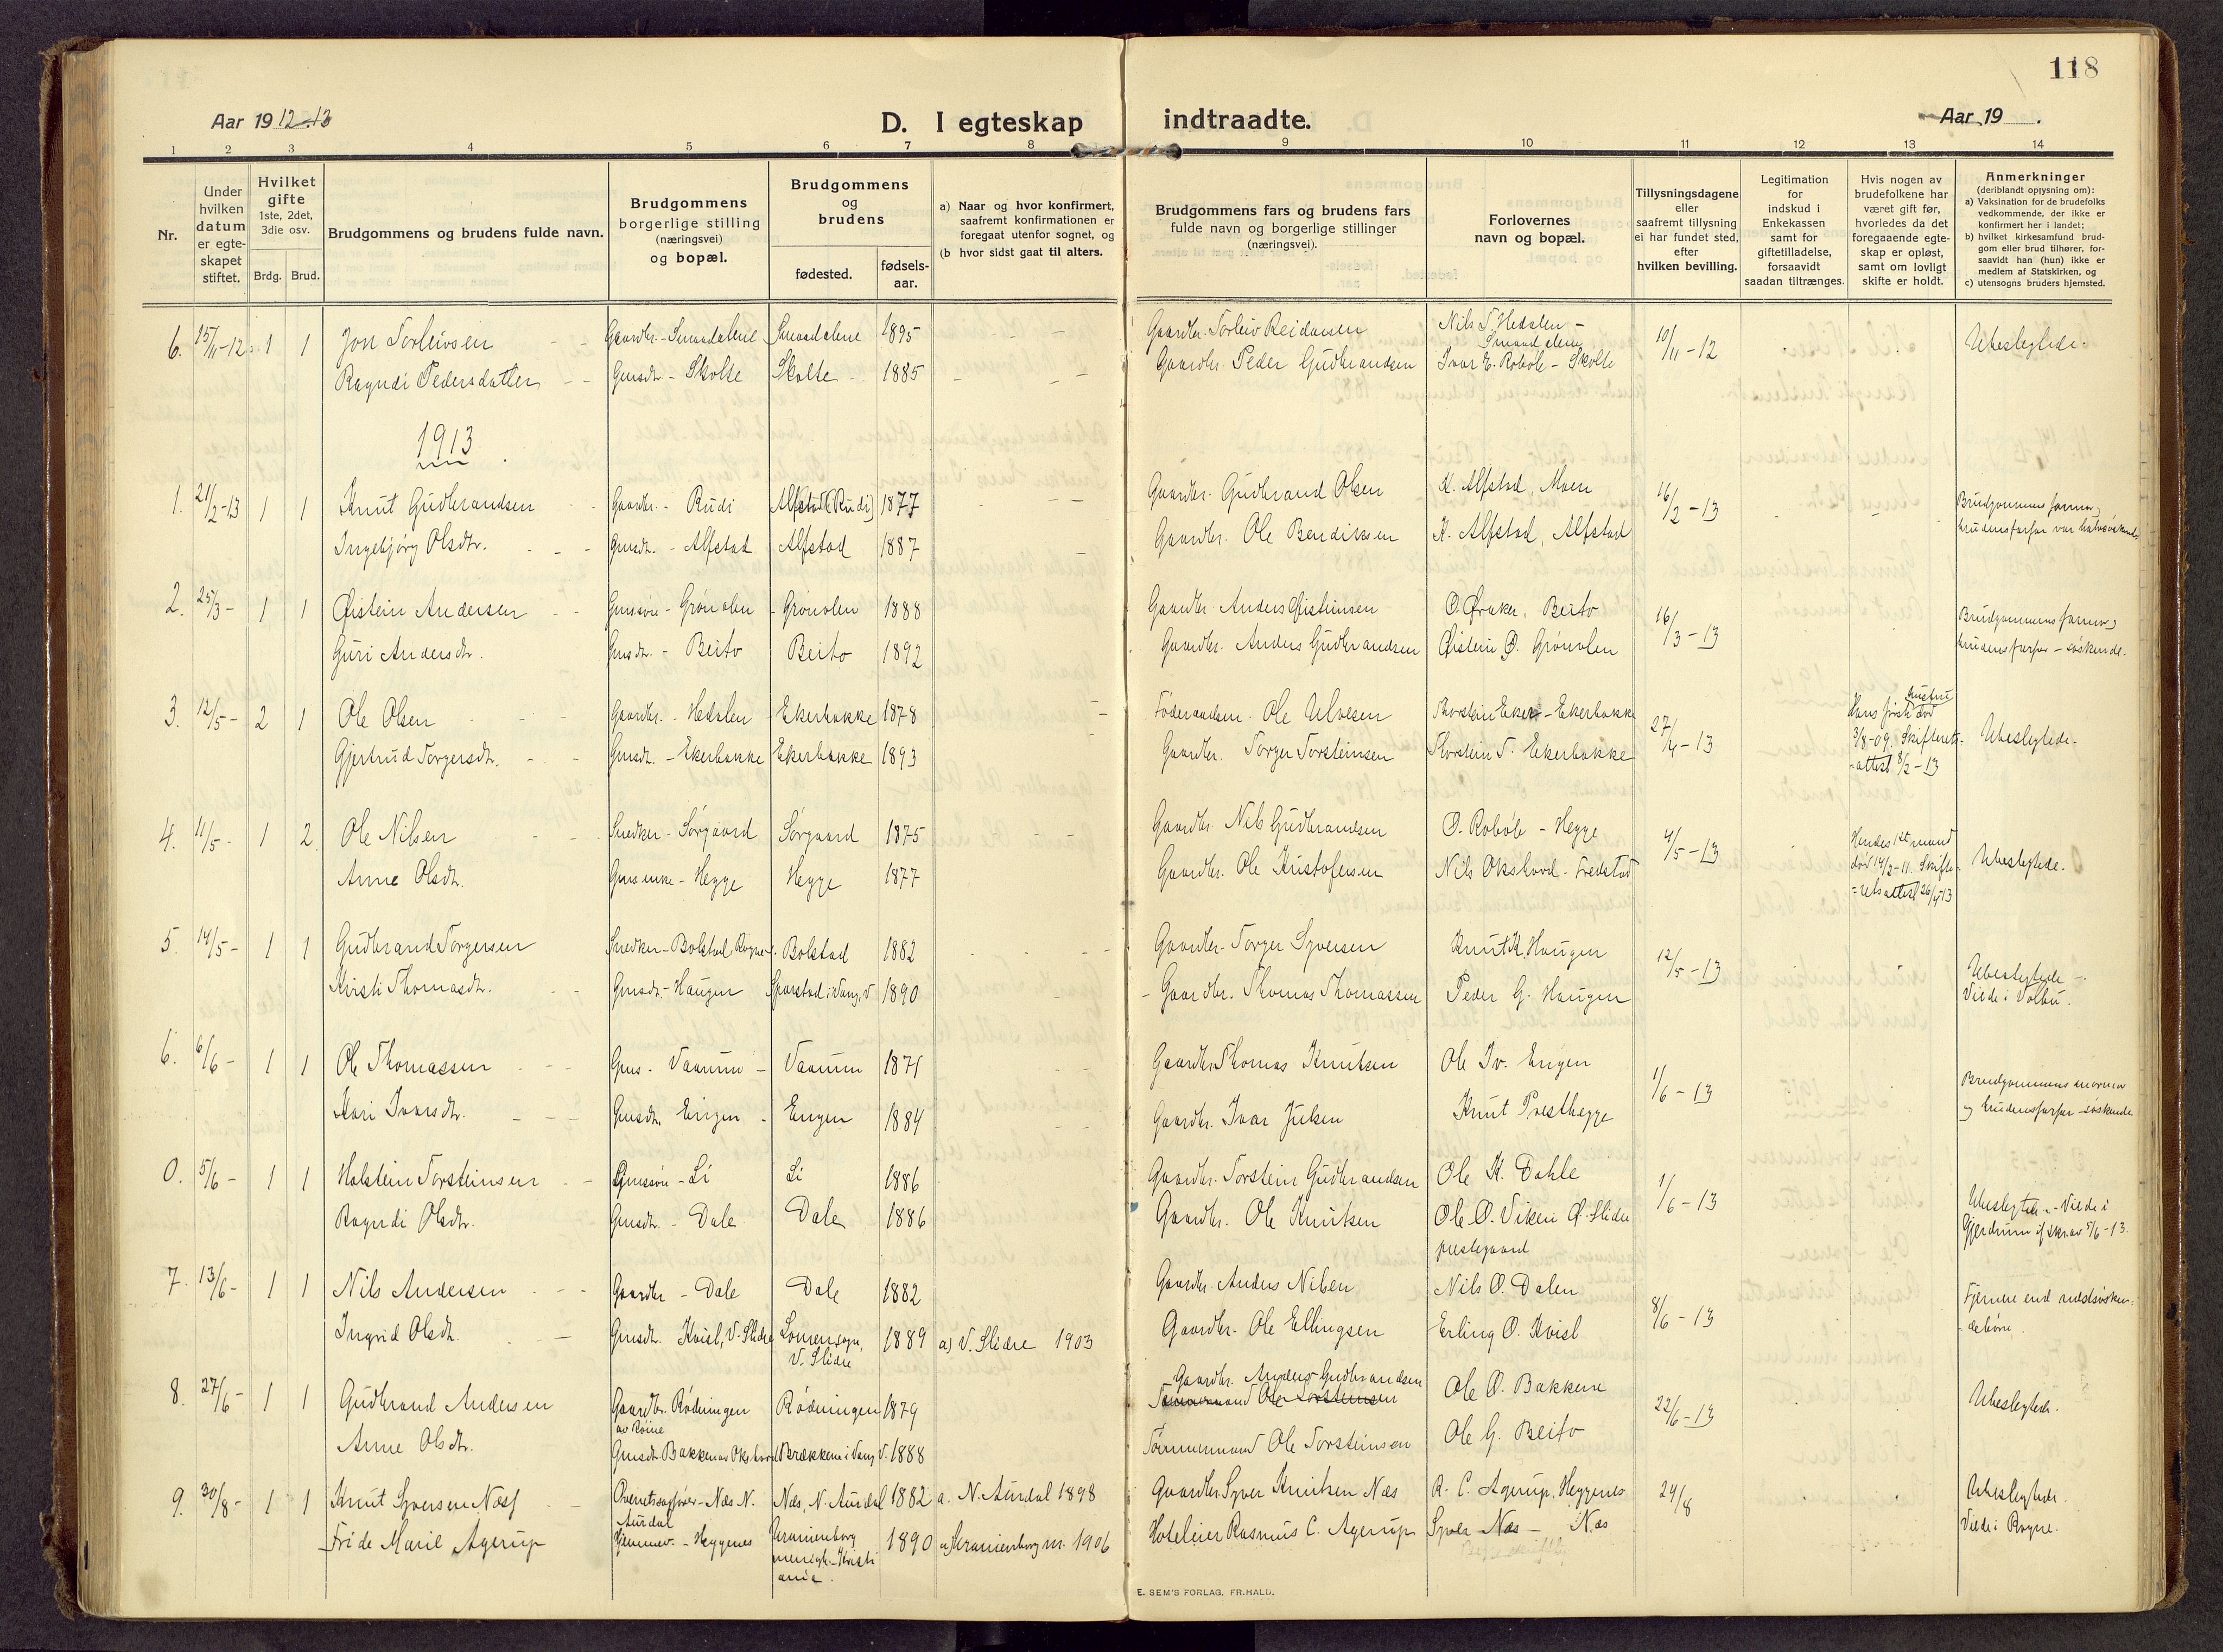 118
Aar 1912-13
D. I egteskap indtraadte.
Aar 19
1 2 3 4 5 6 7 8 9 10 11 12 13 14
Nr.
Under hvilken datum er egteskapet stiftet.
Hvilket gifte 1ste, 2det, 3die osv.
Brdg. Brud.
Brudgommens og brudens fulde navn.
Brudgommens borgerlige stilling (næringsvei) og bopæl.
Brudgommens og brudens
fødested. fødsels-aar.
a) Naar og hvor konfirmert, saafremt konfirmationen er foregaat utenfor sognet, og
(b hvor sidst gaat til alters.
Brudgommens fars og brudens fars fulde navn og borgerlige stillinger (næringsvei).
Forlovernes navn og bopæl.
Tillysningsdagene eller saafremt tillysning ei har fundet sted, efter hvilken bevilling.
Legitimation for indskud i Enkekassen samt for giftetilladelse, forsaavidt saadan tiltrænges.
Hvis nogen av brudefolkene har været gift før, hvorledes da det foregaaende egteskap er opløst, samt om lovligt skifte er holdt.
Anmerkninger
(deriblandt oplysning om):
a) Vaksination for de brudefolks vedkommende, der ikke er konfirmert her i landet;
b) hvilket kirkesamfund brudgom eller brud tilhører, forsaavidt han (hun) ikke er medlem af Statskirken, og
c) utensogns bruders hjemsted.
6. 15/11-12 1 1 Jon Torleivsen Gaardbr. - Smaadalene Smaadalene 1895 Gaardbr. Torleiv Reidarsen Nils T. Hedalen - Smaadalene 10/11-12 Ubeslegtede.
Ragndi Pedersdatter Gmsdtr. - Skolte Skolte 1885 Gaardbr. Peder Gudbrandsen Ivar E. Robøle - Skolte
1913
1. 21/2-13 1 1 Knut Gudbrandsen Gaardbr. - Rudi Alfstad (Rudi) 1877 Gaardbr. Gudbrand Olsen K. Alfstad, Moen 16/2-13 Brudgommens farmor,
Ingebjørg Olsdtr. Gmsdtr. - Alfstad Alfstad 1887 Gaardbr. Ole Bendiksen K. Alfstad, Alfstad brudens farfar var halvsøskende
2. 25/3- 1 1 Øistein Andersen Gmssøn - Grønolen Grønolen 1888 Gaardbr. Anders Øisteinsen O. Øraker, Beito 16/3-13 Brudgommens farmor,
Guri Andersdtr. Gmsdtr. - Beito Beito 1892 Gaardbr. Anders Gudbrandsen Øistein Ø. Grønolen brudens farfar - søskende.
3. 12/5- 2 1 Ole Olsen Gaardbr. - Hedalen Ekerbakke 1878 Føderaadsm. Ole Ulvesen Thorstein Eker - Ekerbakke 27/4-13 Hans første hustru død 3/8-09. Skifteretsattest 8/2-13 Ubeslegtede.
Gjertrud Torgersdtr. Gmsdtr. - Ekerbakke Ekerbakke 1893 Gaardbr. Torger Torsteinsen Thorstein T. Ekerbakke
4. 11/5- 1 2 Ole Nilsen Snedker - Sørgaard Sørgaard 1875 Gaardbr. Nils Gudbrandsen O. Robøle - Hegge 4/5-13 Hendes 1st mand død 14/2-11. Skifteretsattest 26/4-13 Ubeslegtede.
Anne Olsdtr. Gmsenke - Hegge Hegge 1877 Gaardbr. Ole Kristofersen Nils Okshovd - Fredstad
5. 14/5- 1 1 Gudbrand Torgersen Snedker - Bolstad, Rogne Bolstad 1882 Gaardbr. Torger Syversen Knut K. Haugen 12/5-13 Ubeslegtede -
Kristi Thomasdtr. Gmsdtr. - Haugen Sparstad i Vang, V. 1890 Gaardbr. Thomas Thomassen Peder G. Haugen Viede i Volbu.
6. 6/6- 1 1 Ole Thomassen Gms. - Vaarum Vaarum 1871 Gaardbr. Thomas Knutsen Ole Iv. Engen 1/6-13 Brudgommens mormor
Kari Ivarsdtr. Gmsdtr. Engen Engen 1884 Gaardbr. Ivar Julsen Knut Presthegge og brudens farfar - søskende
0. 5/6- 1 1 Halstein Torsteinsen Gmssøn - Li Li 1886 Gaardbr. Torstein Gudbrandsen Ole K. Dahle 1/6-13 Ubeslegtede - Viede i
Ragndi Olsdtr. Gmsdtr. - Dale Dale 1886 Gaardbr. Ole Knutsen Ole O. Viken Ø. Slidre prestegaard Gjerdrum if. skr. av 5/6-13.
7. 13/6- 1 1 Nils Andersen Gaardbr - Dale Dale 1882 Gaardbr. Anders Nilsen Nils O. Dalen 8/6-13 Fjernere end næstsøsken-
Ingrid Olsdtr. Gmsdtr. Kvisl, V. Slidre Lomen sogn, V. Slidre 1889 a) V. Slidre 1903 Gaardbr. Ole Ellingsen Erling O. Kvisl debørn.
8. 27/6- 1 1 Gudbrand Andersen Gaardbr. Rødningen av Roine Rødningen 1879 Gaardbr. Anders Gudbrandsen Ole O. Bakkene 22/6-13 Ubeslegtede.
Tømmermand Ole Torsteinsen
Anne Olsdtr. Gmsdtr. Bakken av Okshovd Brækkene i Vang V. 1888 Tømmermand Ole Torsteinsen Ole G. Beito
9. 30/8- 1 1 Knut Syversen Næs Overretssagfører - Næs N. Aurdal Næs, N. Aurdal 1882 a. N. Aurdal 1898 Gaardbr Syver Knutsen Næs R. C. Agerup, Heggenes 24/8 Ubeslegtede.
Fride Marie Agerup Hjemmev. - Heggenes Uranienborg menigh. Kristiania. 1890 a) Uranienborg m. 1906 Hoteleier Rasmus C. Agerup Syver Næs - Næs Viede i Rogne.
E. SEM'S FORLAG, FR.HALD.